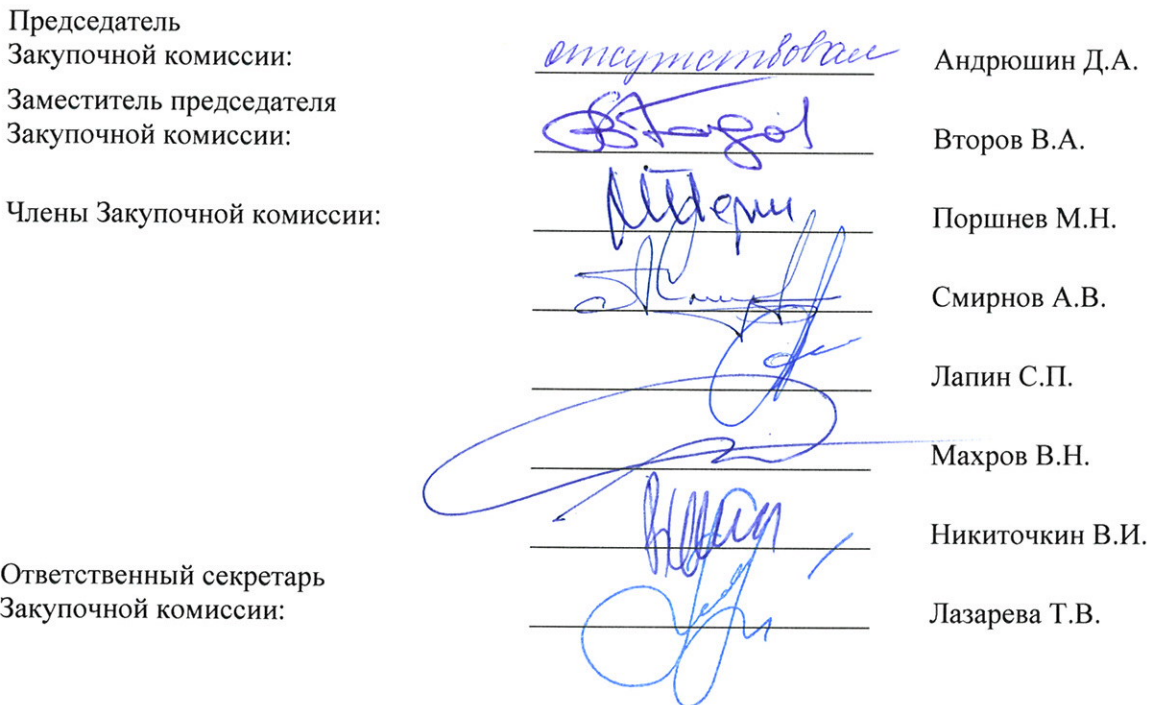 Председатель
Закупочной комиссии: отсутствовал Андрюшин Д.А.
Заместитель председателя
Закупочной комиссии: Второв В.А.
Члены Закупочной комиссии: Поршнев М.Н.
Смирнов А.В.
Лапин С.П.
Махров В.Н.
Никиточкин В.И.
Ответственный секретарь
Закупочной комиссии: Лазарева Т.В.